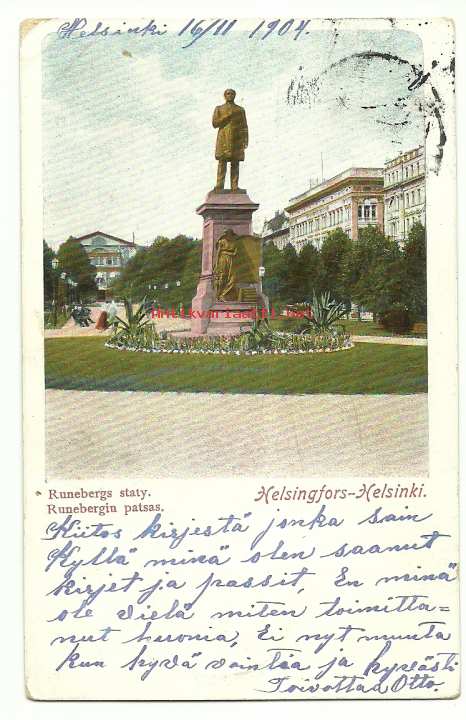 Helsinki 16/11 1904.
Antikvariaatti.net
Runebergs staty.
Runebergin patsas.
Helsingfors-Helsinki.
Kiitos kirjestä jonka sain
Kyllä minä olen saanut
kirjet ja passit, En minä
ole vielä miten toimitta=
nut huonia, Ei nyt muuta
kun hyvä vointia ja hyvästi
Toivottaa Otto.